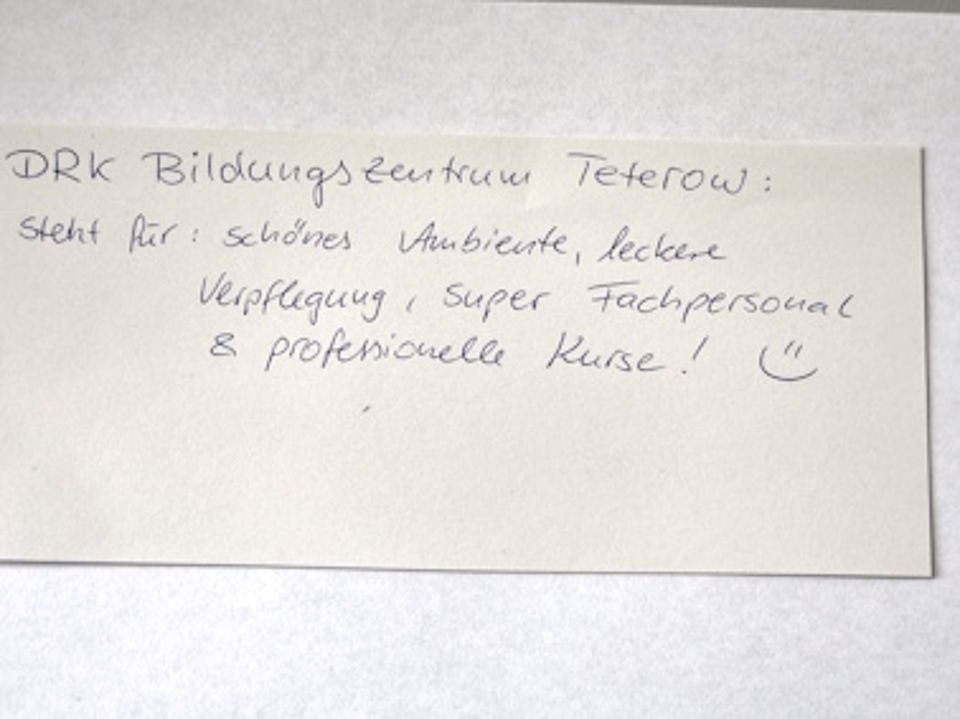 DRK Bildungszentrum Teterow:
steht für: schönes Ambiente, leckere
Verpflegung, super Fachpersonal
& professionelle Kurse!